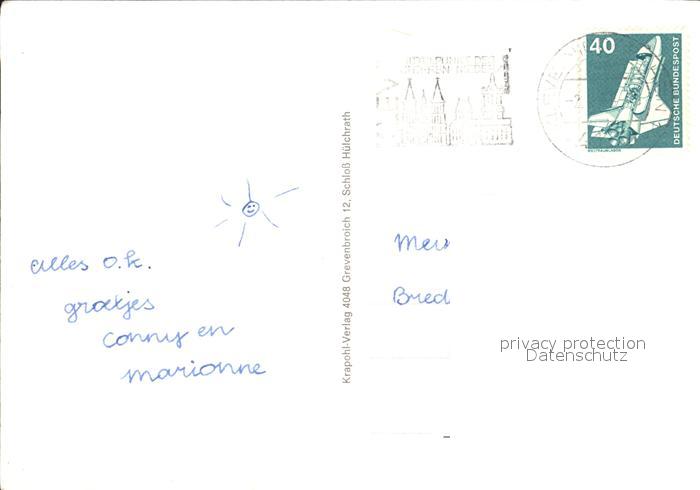 alles o.k.
groetjes
conny en
marionne
Krapohl-Verlag 4048 Grevenbroich 12, Schloß Hülchrath
40
DEUTSCHE BUNDESPOST
WELTRAUMLABOR
Bred
privacy protection
Datenschutz